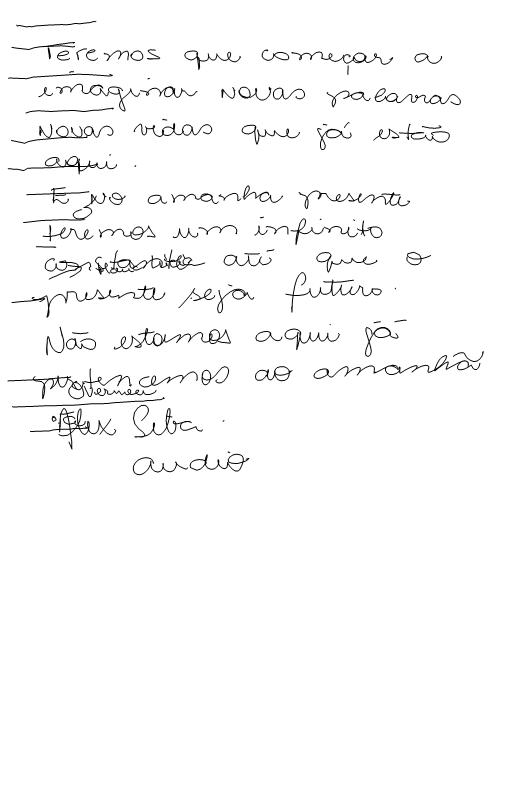 Teremos que começar a
imaginar novas palavras
novas vidas que já estão
aqui.
E no amanhã presente
teremos um infinito
constante até que o
presente seja futuro.
Não estamos aqui já
pertencemos ao amanhã
Alex Silva.
audio